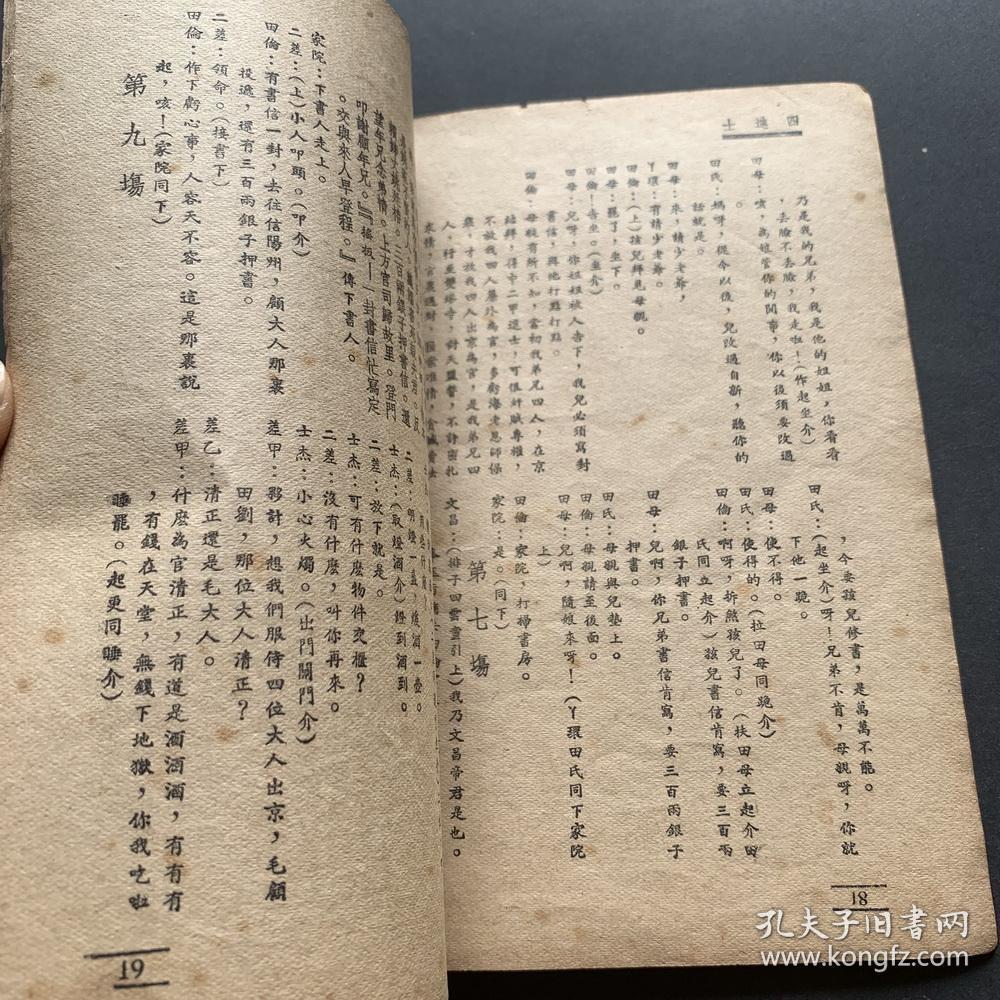 四進士
乃是我的兄弟，我是他的姐姐，你看看
，丟臉不丟臉，我走啦！（作起坐介）
田母：咳，為娘管你的閒事，你以後須要改過
。
田氏：媽呀，從今以後，兒改過自新，聽你的
話就是。
田母：來，請少老爺，
丫環：有請少老爺。
田倫：（上）孩兒拜見母親。
田母：罷了，坐下。
田倫：告坐。（坐介）
田母：兒呀，你姐姐被人告下，我兒必須寫封
書信，與他打點打點。
田倫：母親有所不知，當初我弟兄四人，在京
結拜，得中二甲進士，可恨奸賊專權，
不放我四人簾外為官，多虧海老恩師保
舉，才放我四人出京為官，是我弟兄四
人，行至雙塔寺，對天盟誓，不許密札
，今要孩兒修書，是萬萬不能。
田氏：（起坐介）呀！兄弟不肯，母親呀，你就
下他一跪。
田母：使不得。
田氏：使得的。（拉田母同跪介）
田倫：啊呀，折煞孩兒了。（扶田母立起介田
氏同立起介）孩兒書信肯寫，要三百兩
銀子押書。
田母：兒啊，你兄弟書信肯寫，要三百兩銀子
押書。
田氏：母親與兒墊上。
田倫：母親請至後面。
田母：兒啊，隨娘來呀！（丫環田氏同下家院
上）
田倫：家院，打掃書房。
家院：是。（同下）
第七場
文昌：（排子四雲童引上）我乃文昌帝君是也。
18
望年兄念舊情。上方官司歸故里。登門
叩謝顧年兄。』『搖板——一封書信忙寫定
。交與來人早登程。』傳下書人。
家院：下書人走上。
二差：（上）小人叩頭。（叩介）
田倫：有書信一封，去往信陽州，顧大人那裏
投遞，還有三百兩銀子押書。
二差：領命。（接書下）
田倫：作下虧心事，人容天不容。這是那裏說
起，咳！（家院同下）
第九場
二差：明燈一盞，燒酒一壺。
士杰：（取燈酒介）燈到酒到。
二差：放下就是。
士杰：可有什麽物件交櫃？
二差：沒有什麽，叫你再來。
士杰：小心火燭。（出門關門介）
差甲：夥計，想我們服侍四位大人出京，毛顧
田劉，那位大人清正？
差乙：清正還是毛大人。
差甲：什麽為官清正，有道是酒酒酒，有有有
，有錢在天堂，無錢下地獄，你我吃啦
睡罷。（起更同睡介）
19
孔夫子旧书网
www.kongfz.com